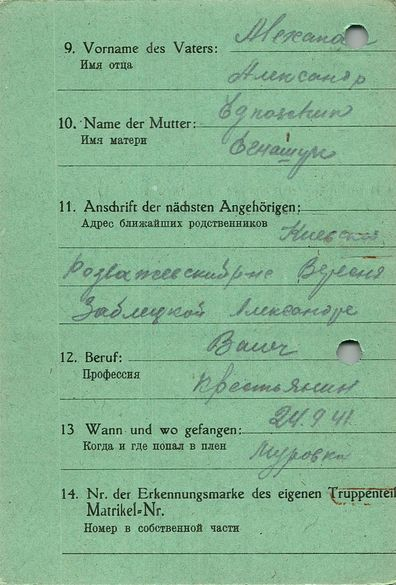 9. Vorname des Vaters:
Имя отца
Александр
10. Name der Mutter:
Имя матери
11. Anschrift der nächsten Angehörigen:
Адрес ближайших родственников
Киевская
Заблецкой Александре
12. Beruf: Bauer
Профессия
крестьянин
13 Wann und wo gefangen: 24.9.41.
Когда и где попал в плен
Муровка
14. Nr. der Erkennungsmarke des eigenen Truppenteil
Matrikel-Nr.
Номер в собственной части